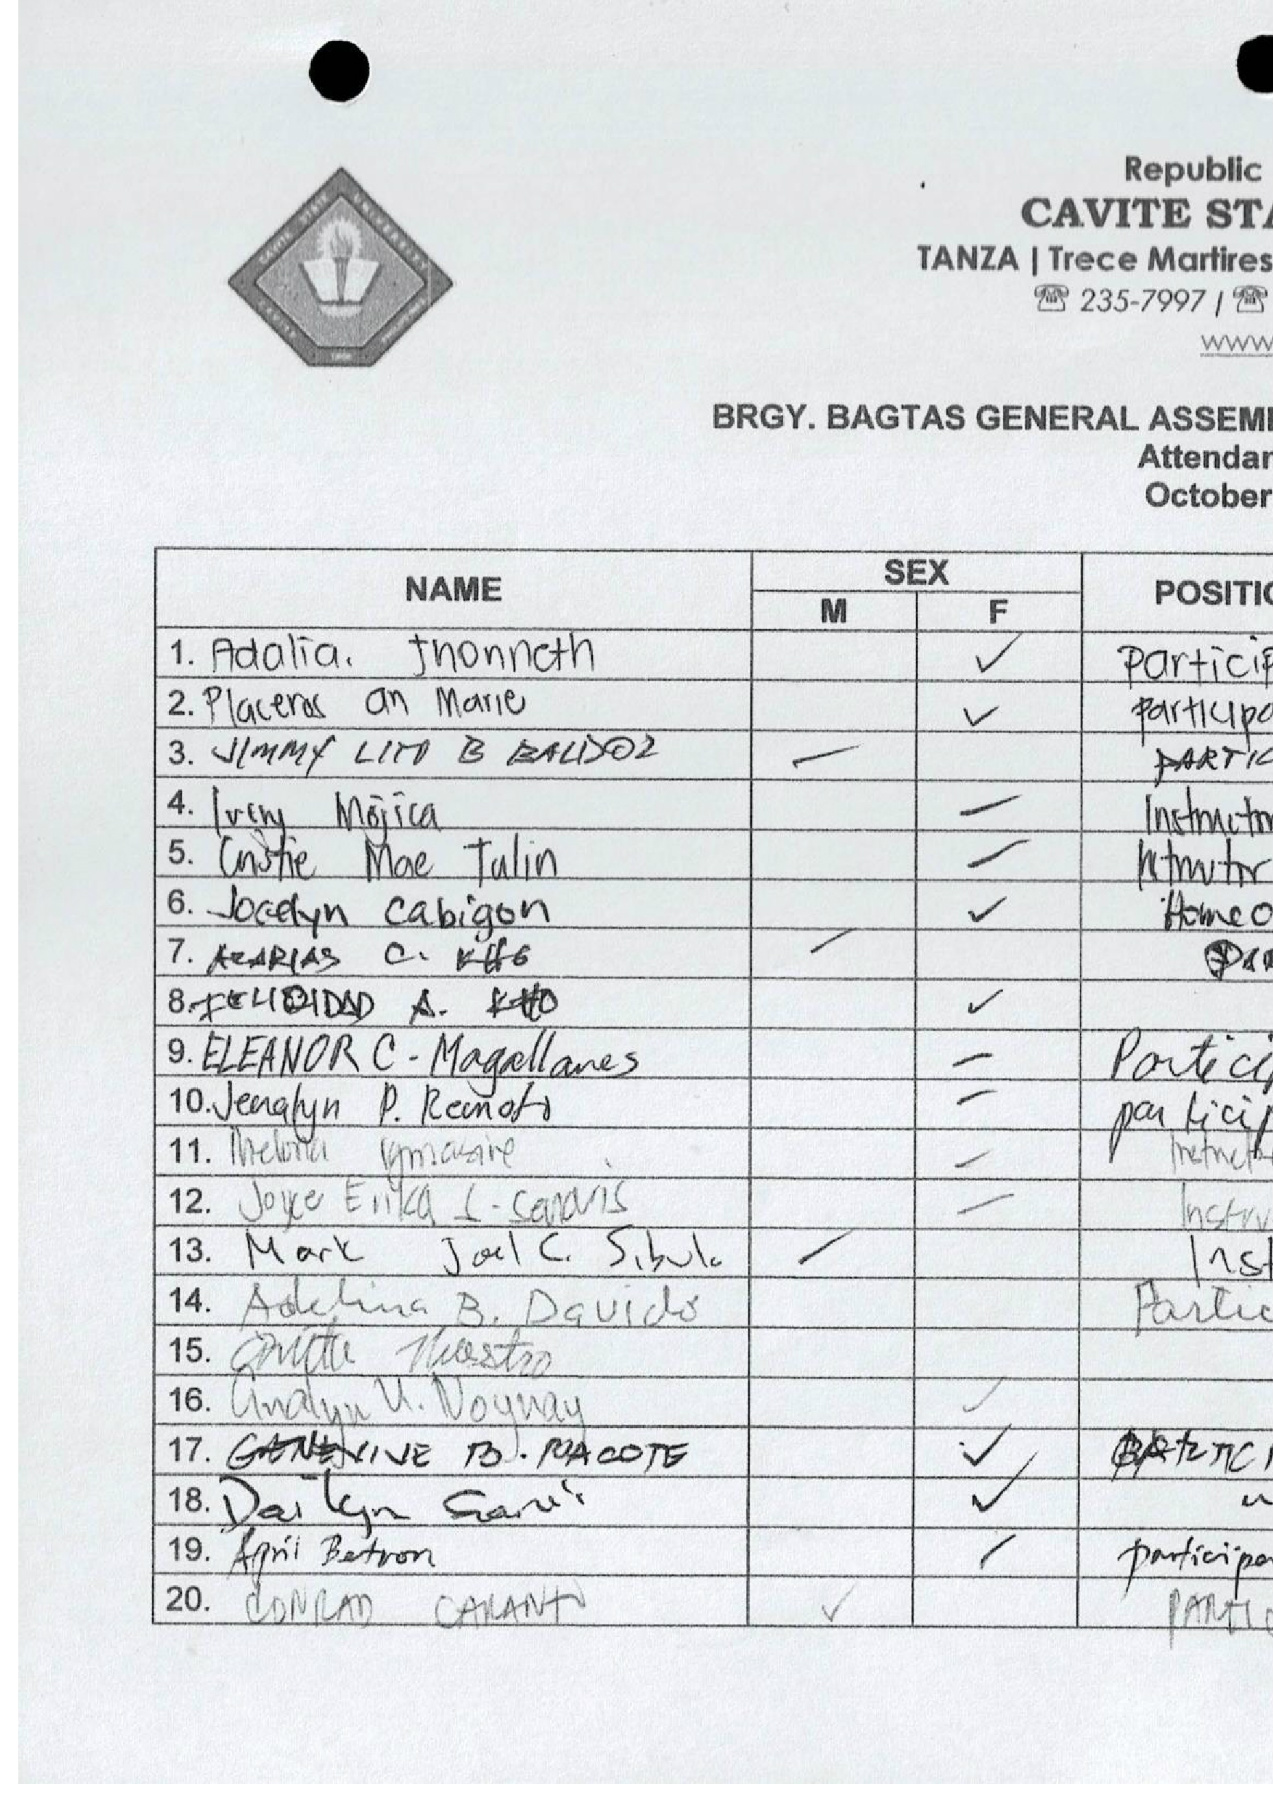 Republic
CAVITE STA
TANZA | Trece Martires
☎ 235-7997 / ☎
www
BRGY. BAGTAS GENERAL ASSEM
Attendan
October
NAME SEX POSITIO
M F
1. Adalia. Jhonneth ✓ Particip
2. Placeros an Marie ✓ participa
3. JIMMY LITO B BALIDOZ PARTIC
4. Ivery Mojica Instructor
5. Cristie Mae Tulin
6. Jocelyn Cabigon ✓ Homeo
7. AZARIAS C. KHO
8. FELICIDAD A. KHO ✓
9. ELEANOR C - Magallanes Particip
10. Jenalyn P. Remoto particip
11. Instructo
12. Joyce Erika Instru
13. Mark Joel C. Sibulo Inst
14. Adelina B. Davids Partic
15.
16. Analyn V. Noynay ✓
17. GENEVIVE B. MACOTE ✓
18. Dailyn ✓
19. April Betron participa
20. CONRAD CARANTO ✓ PARTIC